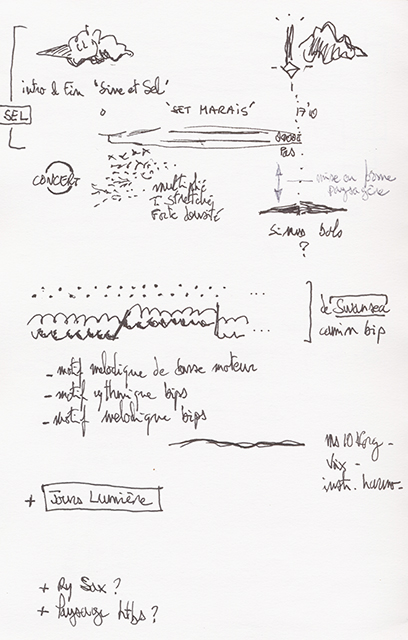 intro & Fin 'Sine et Sel'
SEL
'SET MARAIS'
0
17'10
CONCERT
multiplié
T. stretching
Forte densité
mise en forme
paysagère
Sinus bols
?
de Swansea
camion bip
- motif mélodique de basse moteur
- motif rythmique bips
- motif mélodique bips
MS10 Korg -
Vox -
instr. harmo -
+ Jours Lumière
+ Ry Sax ?
+ Paysage htbs ?